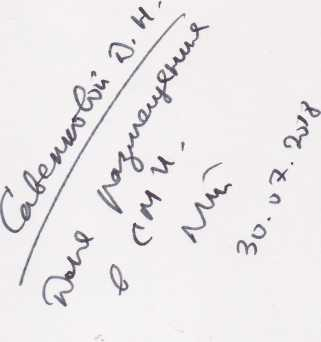 Савенковой Д.Н.
Для размещения
в СМИ.
30.07.2018